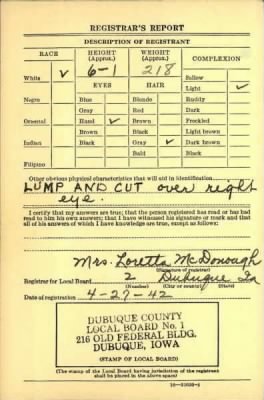 REGISTRAR'S REPORT
DESCRIPTION OF REGISTRANT
RACE HEIGHT (Approx.) WEIGHT (Approx.) COMPLEXION
White ✓ 6-1 218 Sallow
EYES HAIR Light ✓
Negro Blue Blonde Ruddy
Gray Red Dark
Oriental Hazel ✓ Brown Freckled
Brown Black Light brown
Indian Black Gray ✓ Dark brown
Bald Black
Filipino
Other obvious physical characteristics that will aid in identification
LUMP AND CUT over right
eye.
I certify that my answers are true; that the person registered has read or has had
read to him his own answers; that I have witnessed his signature or mark and that
all of his answers of which I have knowledge are true, except as follows:
Mrs. Loretta McDonough
(Signature of registrar)
Registrar for Local Board 2 Dubuque Ia
(Number) (City or county) (State)
Date of registration 4-27-42
DUBUQUE COUNTY
LOCAL BOARD No. 1
216 OLD FEDERAL BLDG.
DUBUQUE, IOWA
(STAMP OF LOCAL BOARD)
(The stamp of the Local Board having jurisdiction of the registrant
shall be placed in the above space)